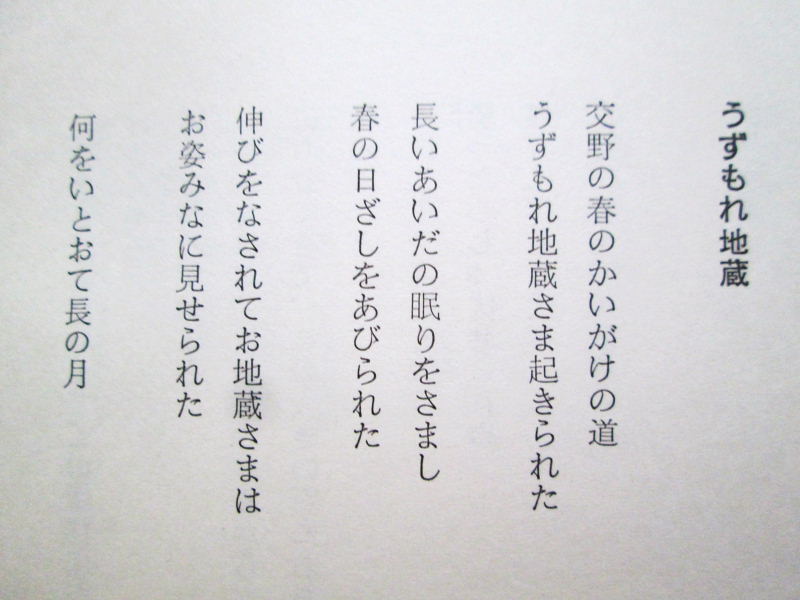 うずもれ地蔵
交野の春のかいがけの道
うずもれ地蔵さま起きられた
長いあいだの眠りをさまし
春の日ざしをあびられた
伸びをなされてお地蔵さまは
お姿みなに見せられた
何をいとおて長の月